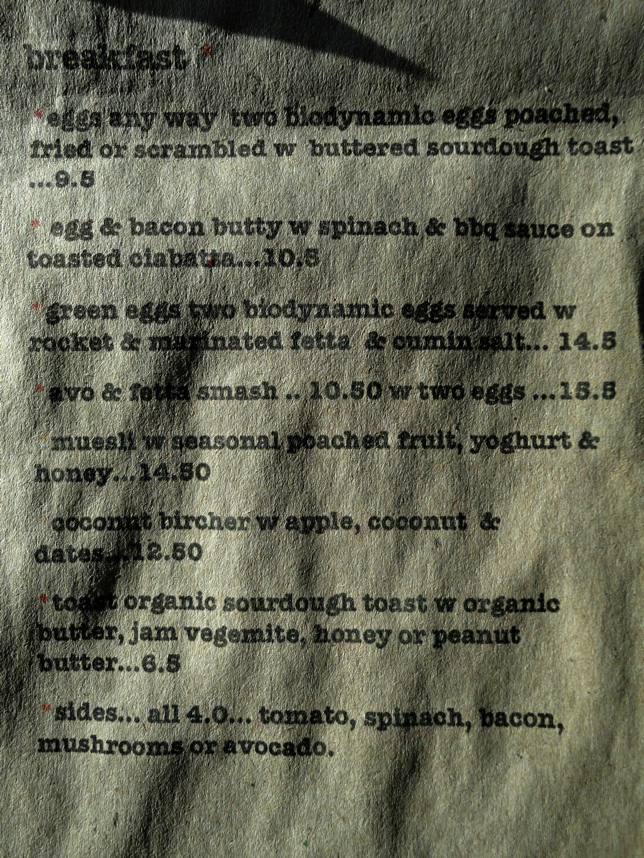 breakfast *
*eggs any way two biodynamic eggs poached,
fried or scrambled w buttered sourdough toast
...9.5
* egg & bacon butty w spinach & bbq sauce on
toasted ciabatta...10.5
*green eggs two biodynamic eggs served w
rocket & marinated fetta & cumin salt... 14.5
*avo & fetta smash .. 10.50 w two eggs ...15.5
*muesli w seasonal poached fruit, yoghurt &
honey...14.50
*coconut bircher w apple, coconut &
dates...12.50
*toast organic sourdough toast w organic
butter, jam vegemite, honey or peanut
butter...6.5
*sides... all 4.0... tomato, spinach, bacon,
mushrooms or avocado.